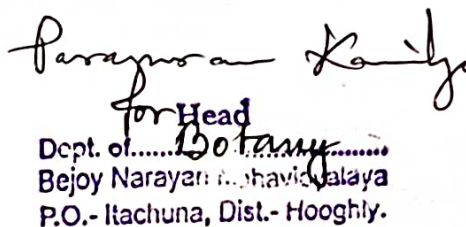 for Head
Dept. of......Botany..........
Bejoy Narayan Mahavidyalaya
P.O.- Itachuna, Dist.- Hooghly.